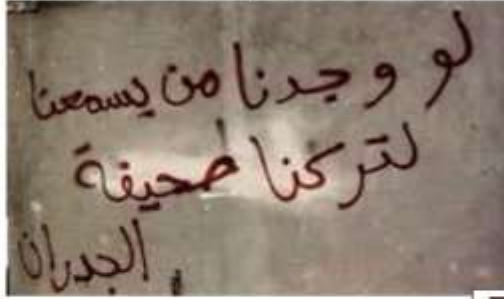 لو وجدنا من يسمعنا
لتركنا صحيفة
الجدران